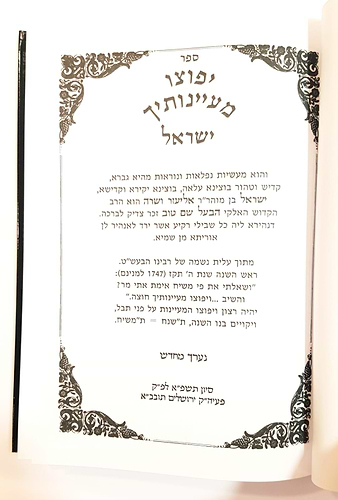 ספר
יפוצו
מעיינותיך
ישראל
והוא מעשיות נפלאות ונוראות מהיא גברא,
קדיש וטהור בוצינא עלאה, בוצינא יקירא וקדישא,
ישראל בן מוהר"ר אליעזר ושרה הוא הרב
הקדוש האלקי הבעל שם טוב זכר צדיק לברכה.
דנהירא ליה כל שבילי רקיע אשר ירד לאנהיר לן
אוריתא מן שמיא.
מתוך עלית נשמה של רבינו הבעש"ט.
ראש השנה שנת ה' תקז (1747 למנינם):
"ושאלתי את פי משיח אימת אתי מר?
והשיב ...ויפוצו מעיינותיך חוצה."
יהיה רצון ויפוצו המעיינות על פני תבל,
ויקויים בנו השנה, ת"שנח = ת"משיח.
נערך מחדש
סיון תשפ"א לפ"ק
פעיה"ק ירושלים תובב"א